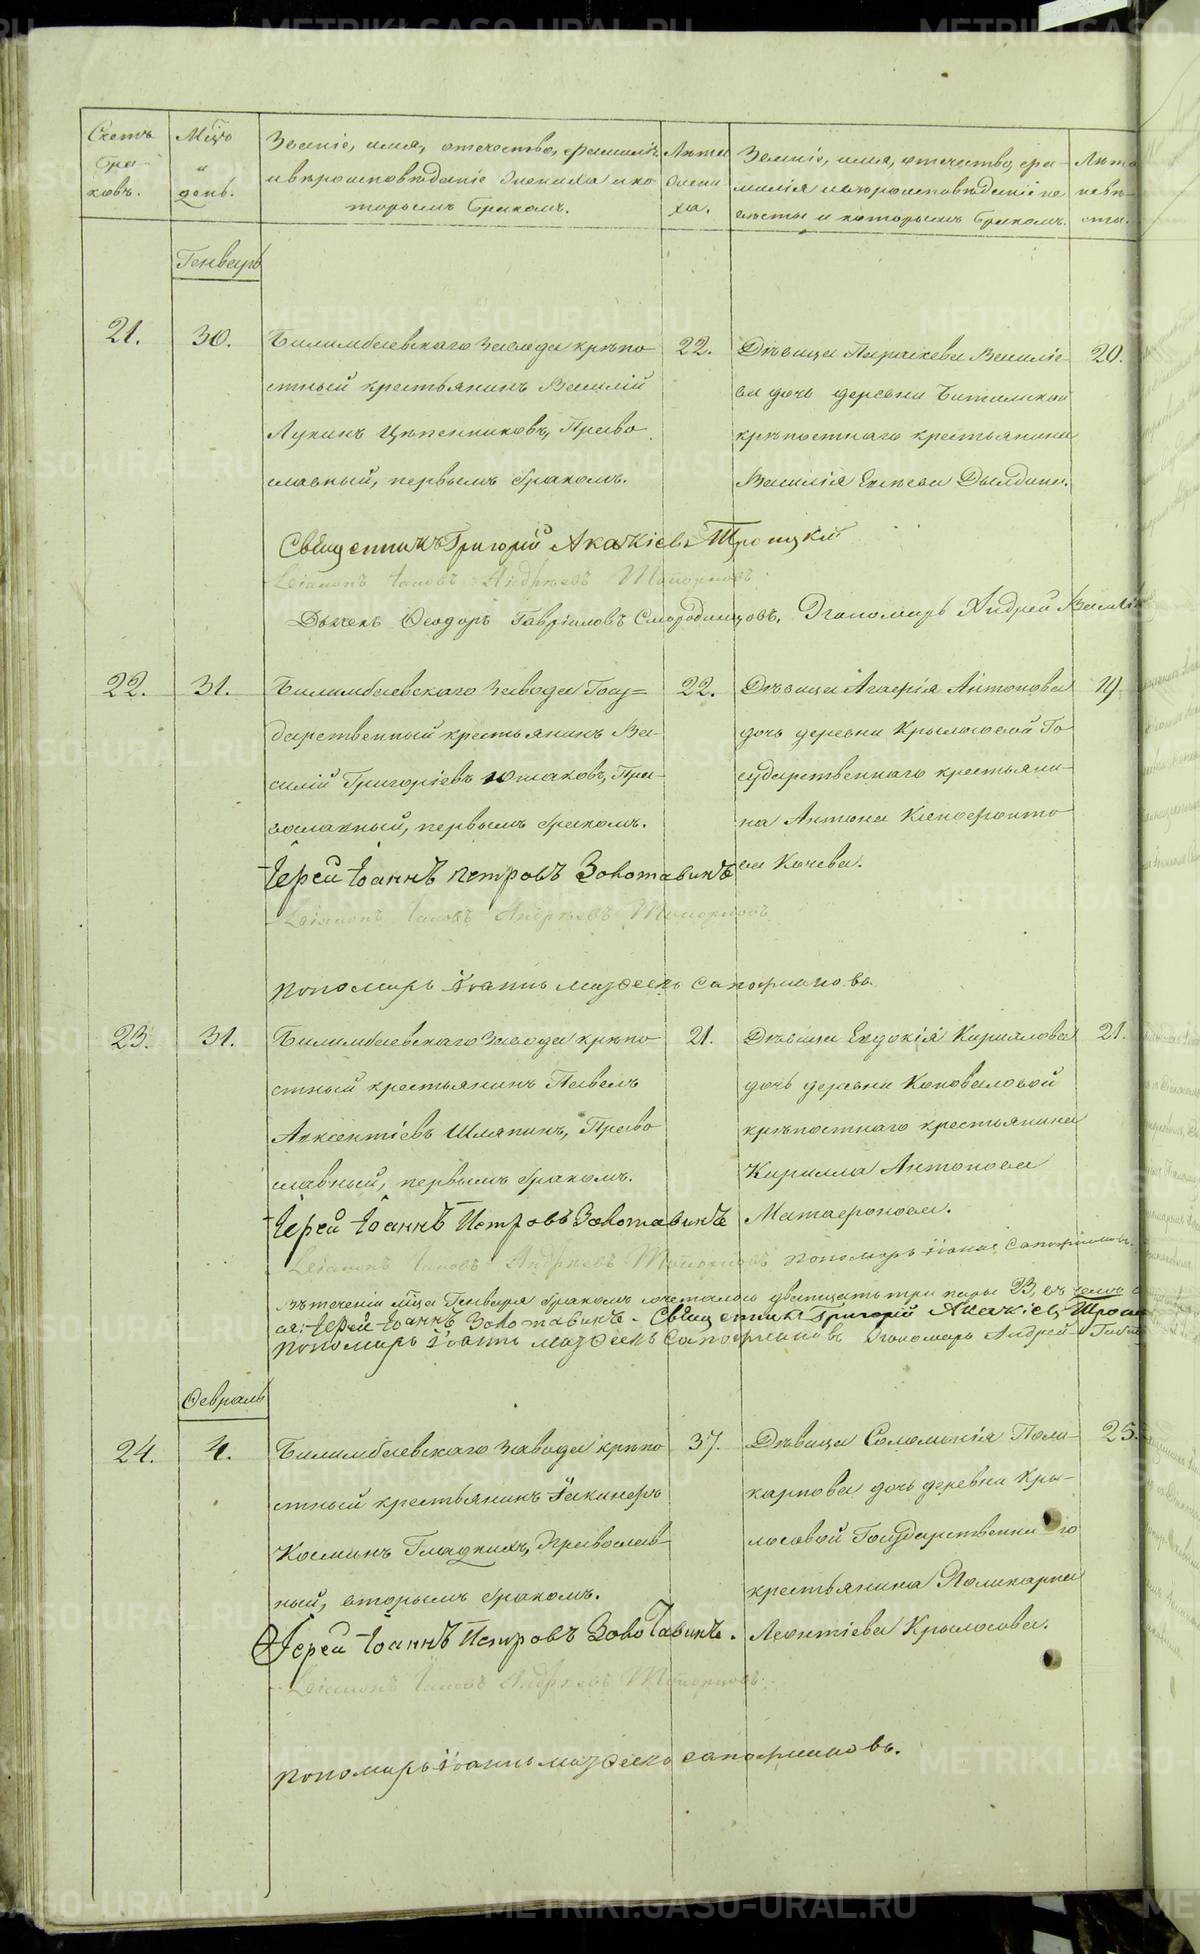 Счетъ
бра-
ковъ.
Мц̃ъ
и
день.
Званіе, имя, отечество, фамилія
и вѣроисповѣданіе жениха и ко
торымъ бракомъ.
Лѣта
жени
ха.
Званіе, имя, отечество, фа
милія и вѣроисповѣданіе не
вѣсты и которымъ бракомъ.
Лѣта
невѣ-
сты.
Генварь
21.
30.
Билимбаевскаго Завода крѣпо
стный крестьянинъ Василій
Лукинъ Цѣпенниковъ, Право
славный, первымъ бракомъ.
22.
Дѣвица Параскева Василіе
ва дочь деревни Битимской
крѣпостнаго крестьянина
Василія Елѣева Дылдина.
20.
Священникъ Григорій Акакіевъ Троицкій
Діаконъ Іаковъ Андрѣевъ Топорковъ
Дьячекъ Ѳеодоръ Гавріиловъ Смородинцовъ. Пономарь Андрей
22.
31.
Билимбаевскаго Завода Госу=
дарственный крестьянинъ Ва-
силій Григоріевъ Юшковъ, Пра-
вославный, первымъ бракомъ.
22.
Дѣвица Агафія Антонова
дочь деревни Крылосовой Го
сударственнаго крестьяни-
на Антона Ксенофонто
ва Качева.
19
Іерей Іоаннъ Петровъ Золотавинъ
Діаконъ Іаковъ Андрѣевъ Топорковъ
Пономарь Іоаннъ Сапожниковъ
23.
31.
Билимбаевскаго Завода крѣпо
стный крестьянинъ Павелъ
Авксентіевъ Шляпинъ, Право
славный, первымъ бракомъ.
21.
Дѣвица Евдокія Кириллова
дочь деревни Коноваловой
крѣпостнаго крестьянина
Кирилла Антонова
Матафонова.
21.
Іерей Іоаннъ Петровъ Золотавинъ
Діаконъ Іаковъ Андрѣевъ Топорковъ Пономарь
Въ теченіи мц̃а Генваря бракомъ сочеталось двадцать три пары 23, въ чемъ
Іерей Іоаннъ Золотавинъ. Священникъ Григорій Акакіевъ
Пономарь Іоаннъ Пономарь Андрей
Февраль
24.
4.
Билимбаевскаго Завода крѣпо
стный крестьянинъ Іакинфъ
Космынъ Гладкихъ, Православ-
ный, вторымъ бракомъ.
37.
Дѣвица Соломонія Поли-
карпова дочь деревни Кры-
лосовой Государственнаго
крестьянина Поликарпа
Леонтіева Крылосова.
25.
Іерей Іоаннъ Петровъ Золотавинъ.
Діаконъ Іаковъ Андрѣевъ Топорковъ.
Пономарь Іоаннъ Сапожниковъ.